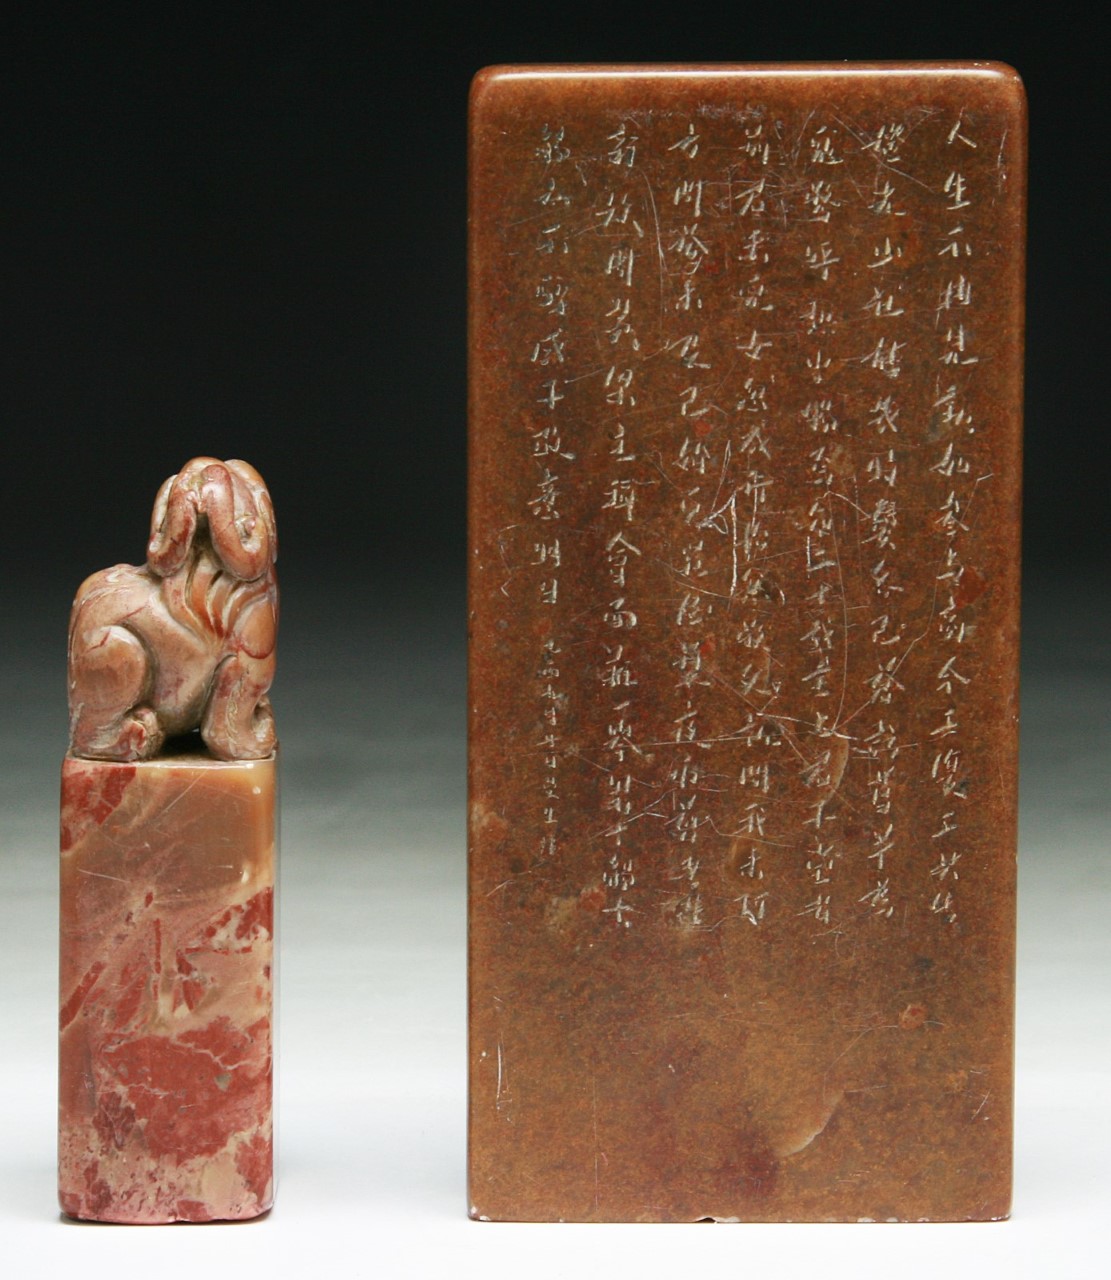 人生不相見動如參與商今夕復何夕共此
燈光少壯能幾時鬢各已蒼訪舊半為
鬼驚呼熱中腸焉知二十載重上君子堂昔
別君未兒女忽成行怡然敬父執問我來何
方問答未及已驅兒羅酒漿夜雨剪春韭
新炊間黃粱主稱會面難一舉累十觴十
觴亦不醉感子故意長